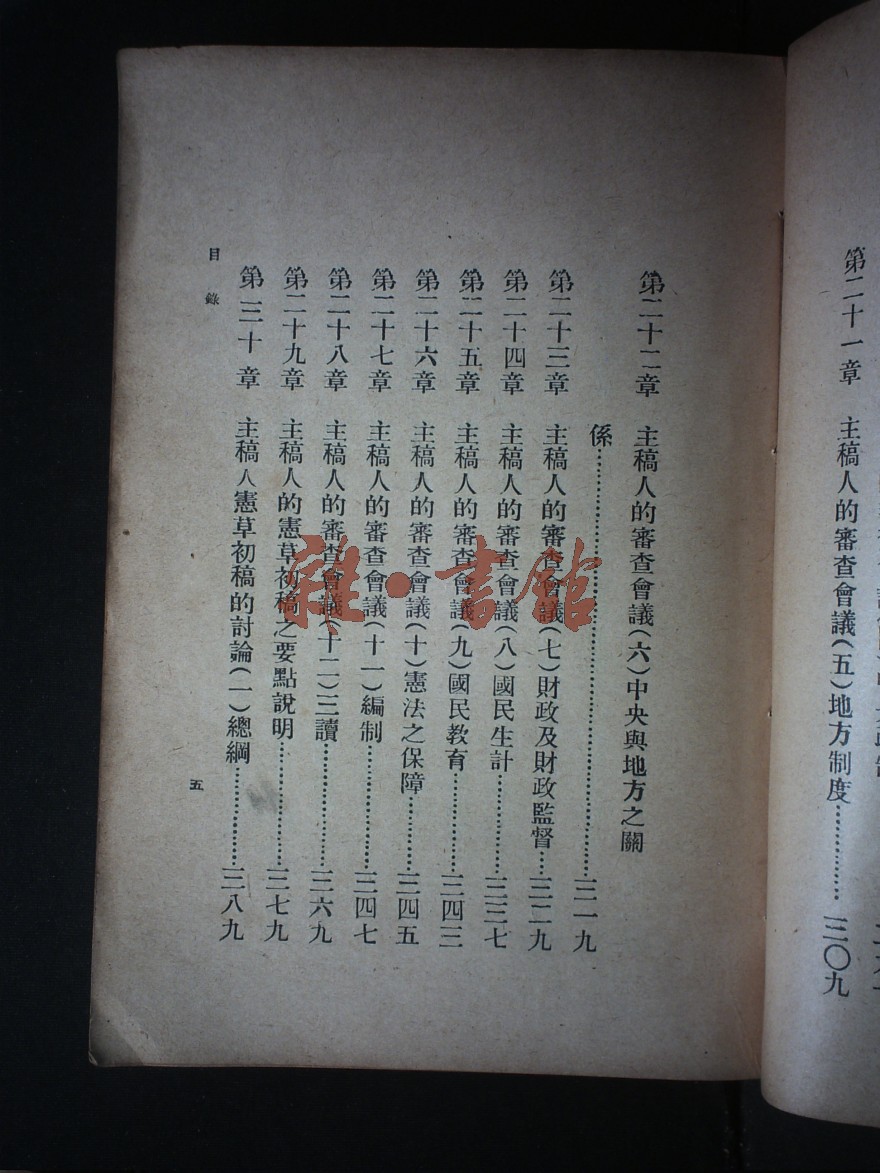 第二十一章　主稿人的審查會議(五)地方制度……………三〇九
第二十二章　主稿人的審查會議(六)中央與地方之關
係……………………………………………三一九
第二十三章　主稿人的審查會議(七)財政及財政監督……三二九
第二十四章　主稿人的審查會議(八)國民生計……………三三七
第二十五章　主稿人的審查會議(九)國民教育……………三四三
第二十六章　主稿人的審查會議(十)憲法之保障…………三四五
第二十七章　主稿人的審查會議(十一)編制………………三四七
第二十八章　主稿人的審查會議(十二)三讀………………三六九
第二十九章　主稿人的憲草初稿之要點說明………………三七九
第三十章　主稿人憲草初稿的討論(一)總綱……………三八九
目錄
五
雜·書館